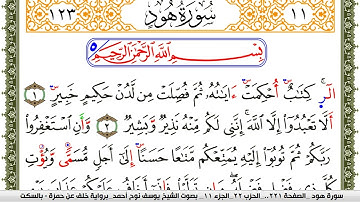 ١١ سُورَةُ هُودٍ ١٢٣
٥ بِسْمِ اللَّهِ الرَّحْمَٰنِ الرَّحِيمِ
الٓر كِتَٰبٌ أُحْكِمَتْ ءَايَٰتُهُۥ ثُمَّ فُصِّلَتْ مِن لَّدُنْ حَكِيمٍ خَبِيرٍ ١
أَلَّا تَعْبُدُوٓا۟ إِلَّا ٱللَّهَ إِنَّنِى لَكُم مِّنْهُ نَذِيرٌ وَبَشِيرٌ ٢ وَأَنِ ٱسْتَغْفِرُوا۟
رَبَّكُمْ ثُمَّ تُوبُوٓا۟ إِلَيْهِ يُمَتِّعْكُم مَّتَٰعًا حَسَنًا إِلَىٰٓ أَجَلٍ مُّسَمًّى وَيُؤْتِ
سورة هود _الصفحة ٢٢١_ الحزب ٢٢_ الجزء ١١ _ بصوت الشيخ يوسف نوح أحمد _برواية خلف عن حمزة - بالسكت